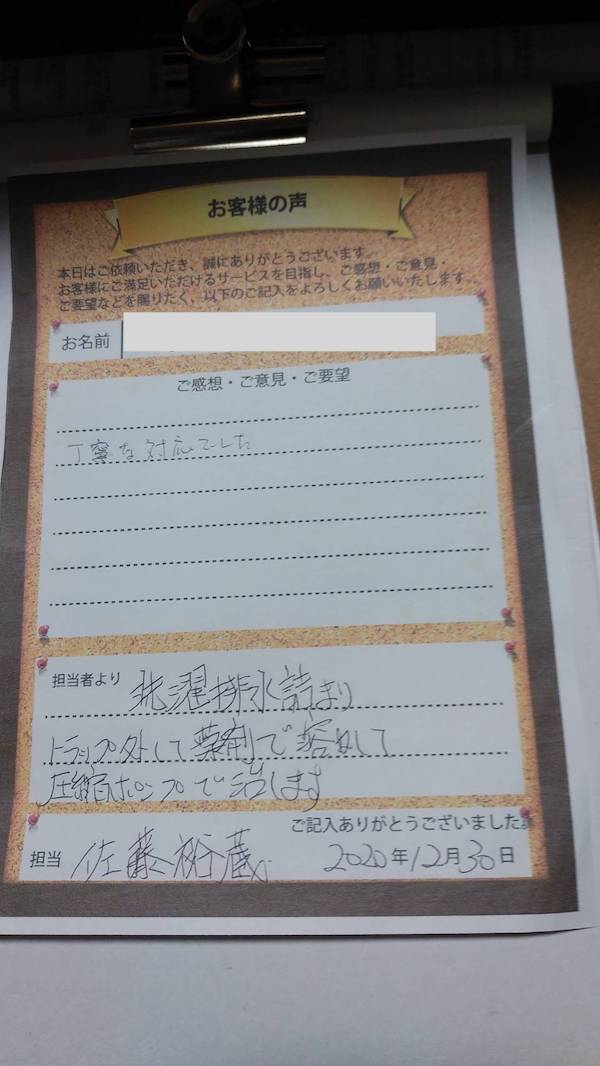 お客様の声
本日はご依頼いただき、誠にありがとうございます。
お客様にご満足いただけるサービスを目指し、ご感想・ご意見・
ご要望などを賜りたく、以下のご記入をよろしくお願いいたします。
お名前
ご感想・ご意見・ご要望
丁寧な対応でした
担当者より 洗濯排水詰まり
トラップ外して薬剤で溶かして
圧縮ポンプで治します
ご記入ありがとうございました。
担当 佐藤裕蔵 2020年12月30日